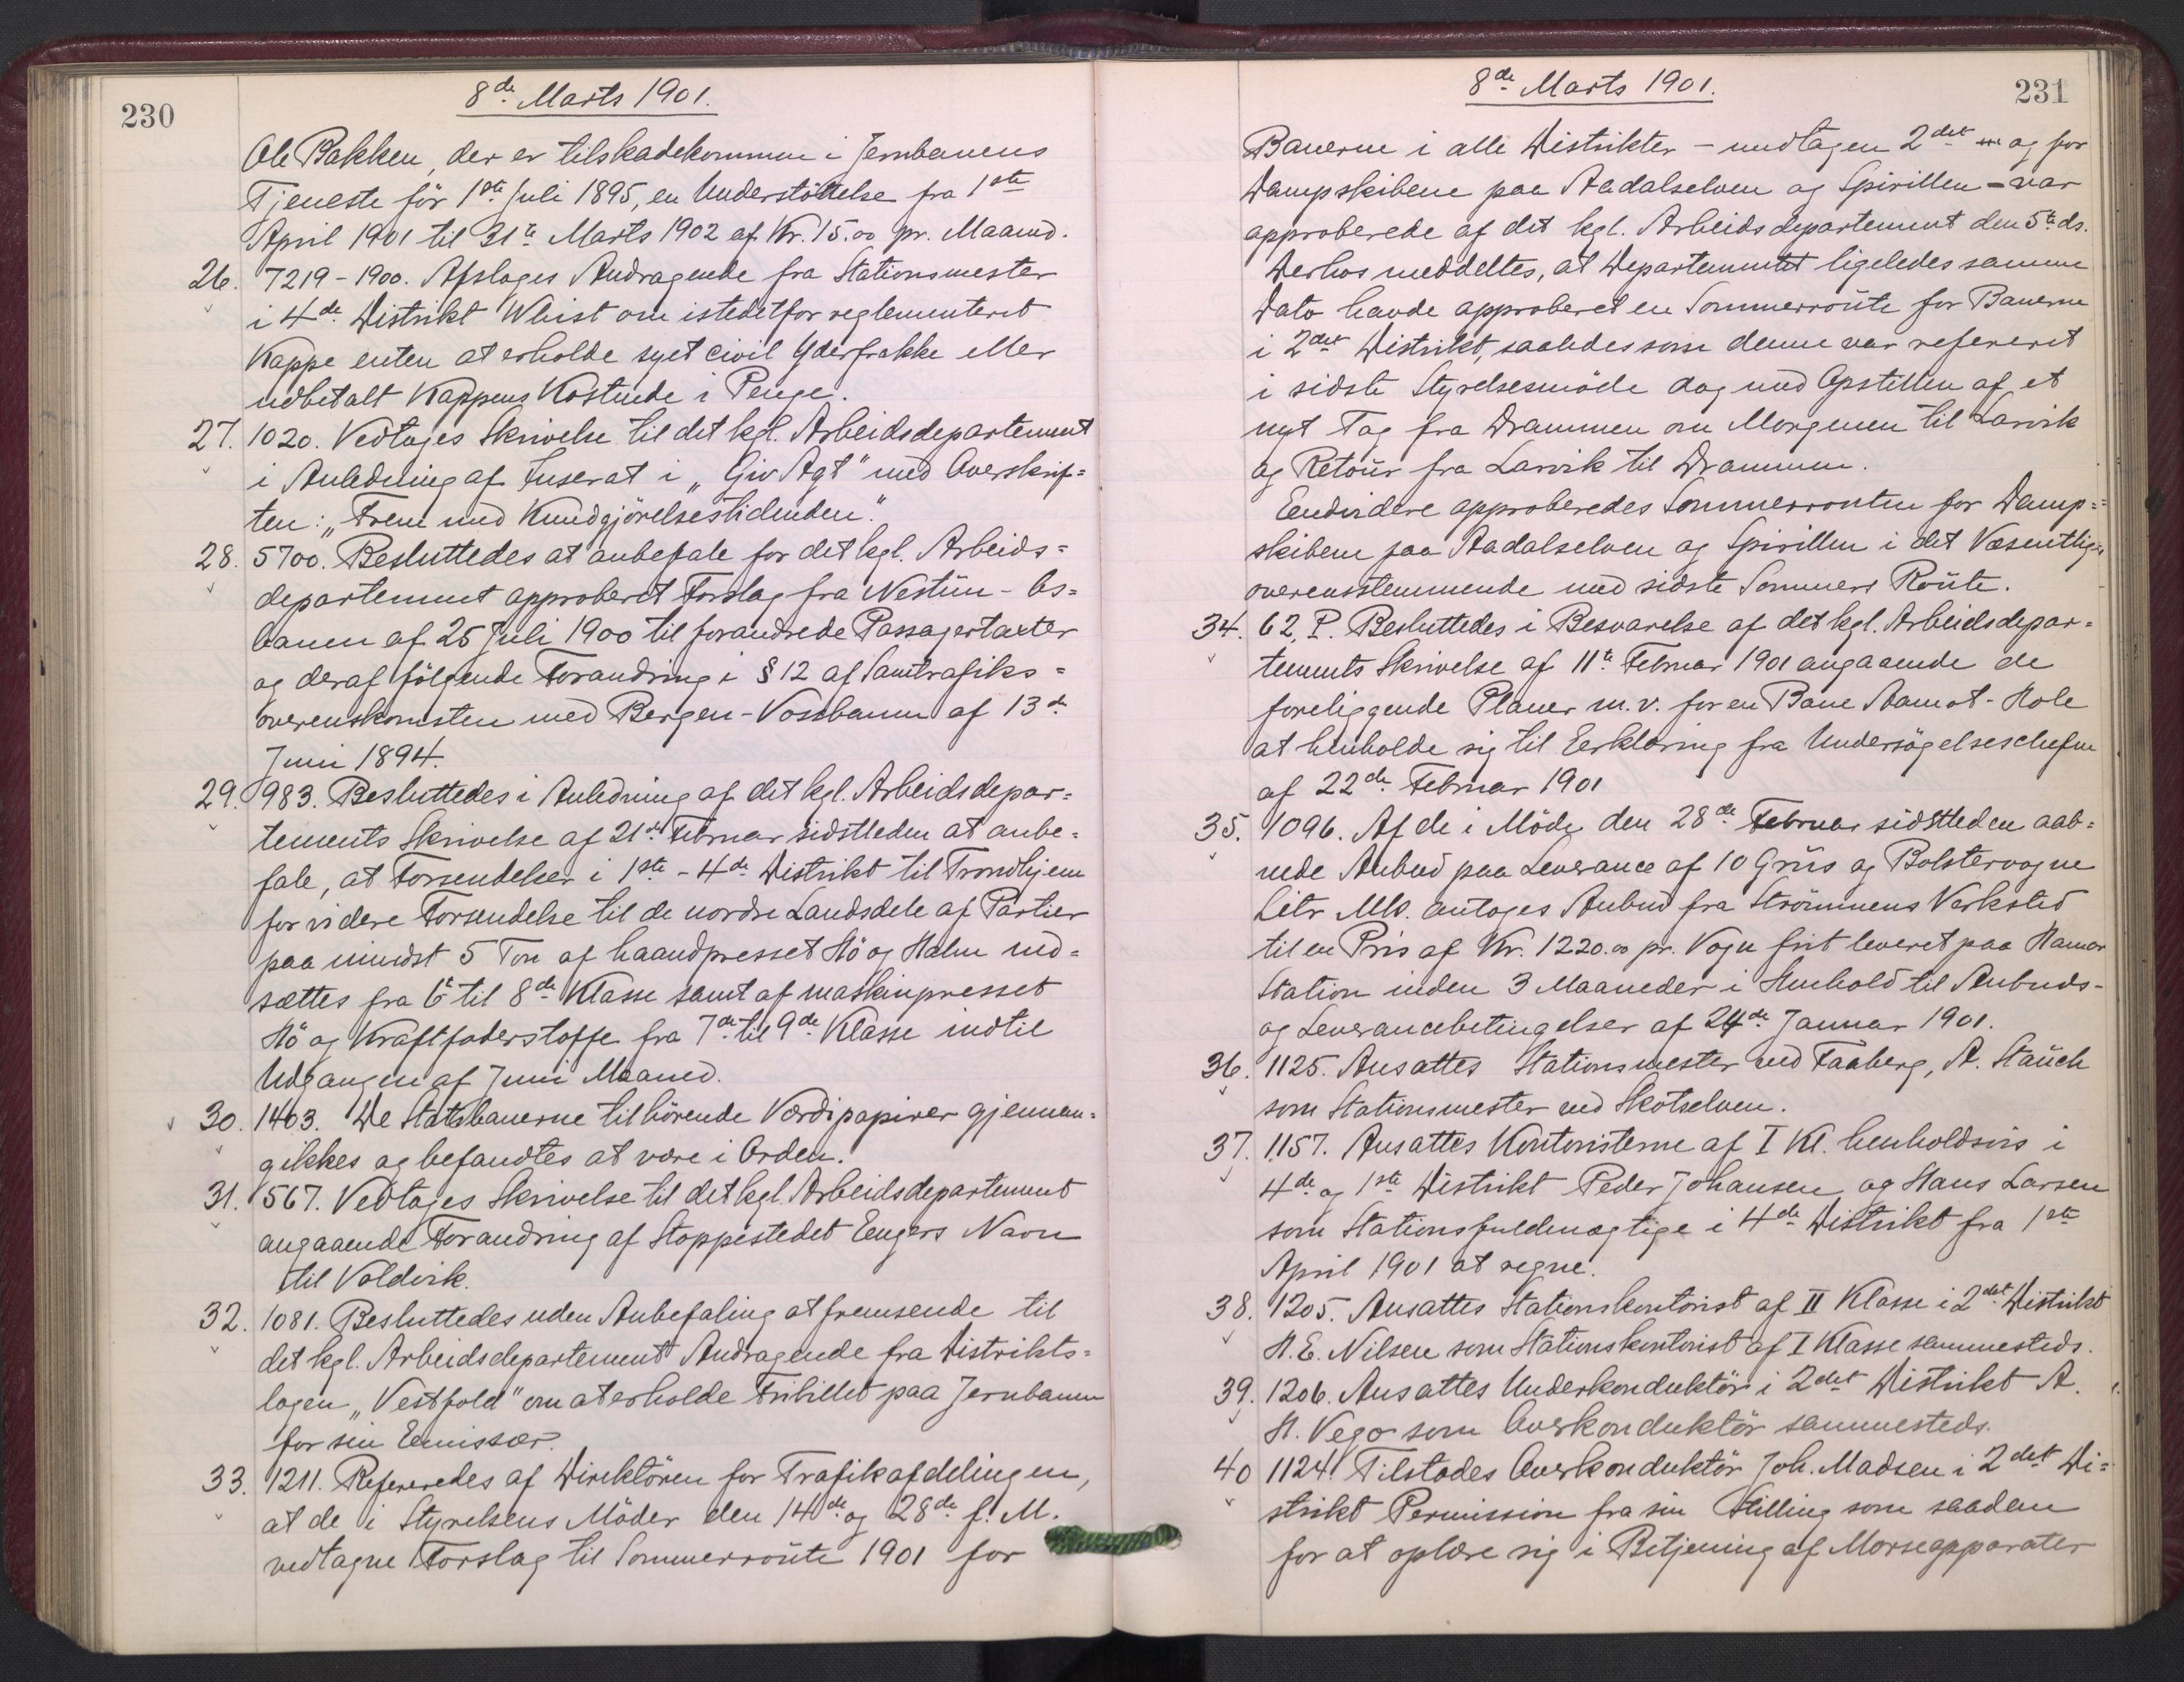 230
8de Marts 1901.
Ole Bakken, der er tilskadekommen i Jernbanens
Tjeneste før 1ste Juli 1895, en Understøttelse fra 1ste
April 1901 til 31te Marts 1902 af Kr. 15.00 pr. Maaned.
26. 7219-1900. Afsloges Andragende fra Stationsmester
i 4de Distrikt Whist om istedetfor reglementeret
Kappe enten at erholde syet civil Yderfrakke eller
udbetalt Kappens Kostende i Penge.
27. 1020. Vedtoges Skrivelse til det kgl. Arbeidsdepartement
i Anledning af Inserat i „Giv Agt" med Overskrif=
ten: „Frem med Kundgjørelsestidenden".
28. 5700. Besluttedes at anbefale for det kgl. Arbeids=
departement approberet Forslag fra Nestun-Os=
banen af 25 Juli 1900 til forandrede Passagertaxter
og deraf følgende Forandring i § 12 af Samtrafiks=
overenskomsten med Bergen-Vossbanen af 13de
Juni 1894.
29. 983. Besluttedes i Anledning af det kgl. Arbeidsdepar=
tements Skrivelse af 21de Februar sidstleden at anbe=
fale, at Forsendelser i 1ste - 4de Distrikt til Trondhjem
for videre Forsendelse til de nordre Landsdele af Partier
paa mindst 5 Ton af haandpresset Hø og Halm ned=
sættes fra 6te til 8de Klasse samt af maskinpresset
Hø og Kraftfoderstoffe fra 7de til 9de Klasse indtil
Udgangen af Juni Maaned.
30. 1403. De Statsbanerne tilhørende Værdipapirer gjennem=
gikkes og befandtes at være i Orden.
31. 567. Vedtoges Skrivelse til det kgl. Arbeidsdepartement
angaaende Forandring af Stoppestedet Engers Navn
til Voldvik.
32. 1081. Besluttedes uden Anbefaling at fremsende til
det kgl. Arbeidsdepartement Andragende fra Distrikts=
logen „Vestfold" om at erholde Fribillet paa Jernbanen
for sin Emissær.
33. 1211. Refereredes af Direktøren for Trafikafdelingen,
at de i Styrelsens Møder den 14de og 28de f. M.
vedtagne Forslag til Sommerroute 1901 for
231
8de Marts 1901.
Banerne i alle Distrikter - undtagen 2det og for
Dampskibene paa Aadalselven og Spirillen - var
approberede af det kgl. Arbeidsdepartement den 5te ds.
Derhos meddeltes, at Departementet ligeledes samme
Dato havde approberet en Sommerroute for Banerne
i 2det Distrikt, saaledes som denne var refereret
i sidste Styrelsesmøde dog med Opstillen af et
nyt Tog fra Drammen om Morgenen til Larvik
og Retour fra Larvik til Drammen.
Endvidere approberedes Sommerrouten for Damp=
skibene paa Aadalselven og Spirillen i det Væsentlige
overensstemmende med sidste Sommers Route.
34. 62. P. Besluttedes i Besvarelse af det kgl. Arbeidsdepar=
tements Skrivelse af 11te Februar 1901 angaaende de
foreliggende Planer m. v. for en Bane Aamot-Hole
at henholde sig til Erklæring fra Undersøgelseschefen
af 22de Februar 1901
35. 1096. Af de i Møde den 28de Februar sidstleden aab=
nede Anbud paa Leverance af 10 Grus og Bolstervogne
Litr Mb. antoges Anbud fra Strømmens Verksted
til en Pris af Kr. 1220.00 pr. Vogn frit leveret paa Hamar
Station inden 3 Maaneder i Henhold til Anbuds-
og Leverancebetingelser af 24de Januar 1901.
36. 1125. Ansattes Stationsmester ved Faaberg, A. Stauch
som Stationsmester ved Skotselven.
37. 1157. Ansattes Kontoristerne af I Kl. henholdsvis i
4de og 1ste Distrikt Peder Johansen og Hans Larsen
som Stationsfuldmægtige i 4de Distrikt fra 1ste
April 1901 at regne.
38. 1205. Ansattes Stationskontorist af II Klasse i 2det Distrikt
H. E. Nilsen som Stationskontorist af I Klasse sammesteds.
39. 1206. Ansattes Underkonduktør i 2det Distrikt A.
H. Vego som Overkonduktør sammesteds.
40 1124. Tilstodes Overkonduktør Joh. Madsen i 2det Di=
strikt Permission fra sin Stilling som saadan
for at oplære sig i Betjening af Morseapparater